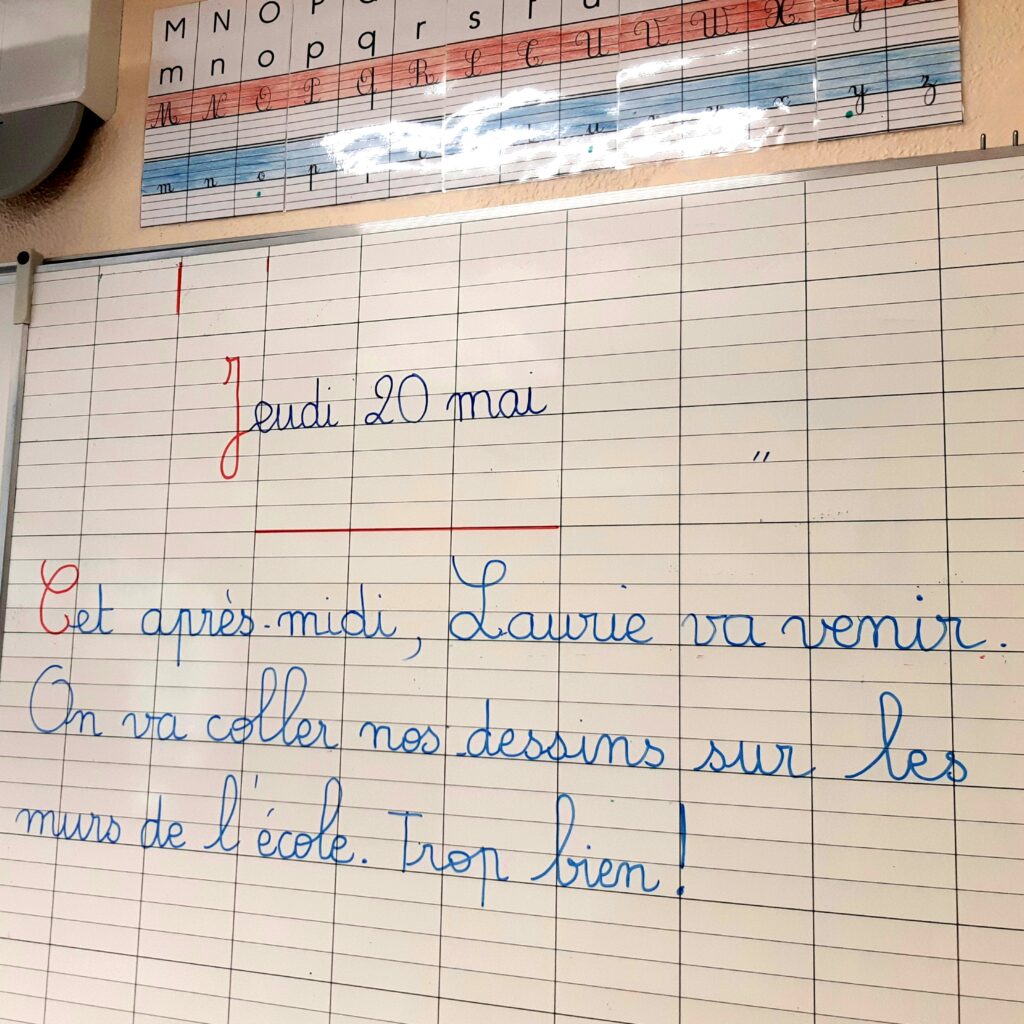 M N O P
m n o p q r s
M N O P Q R S T U V W X Y
m n o p u x y z
Jeudi 20 mai
"
Cet après-midi, Laurie va venir.
On va coller nos dessins sur les
murs de l'école. Trop bien !